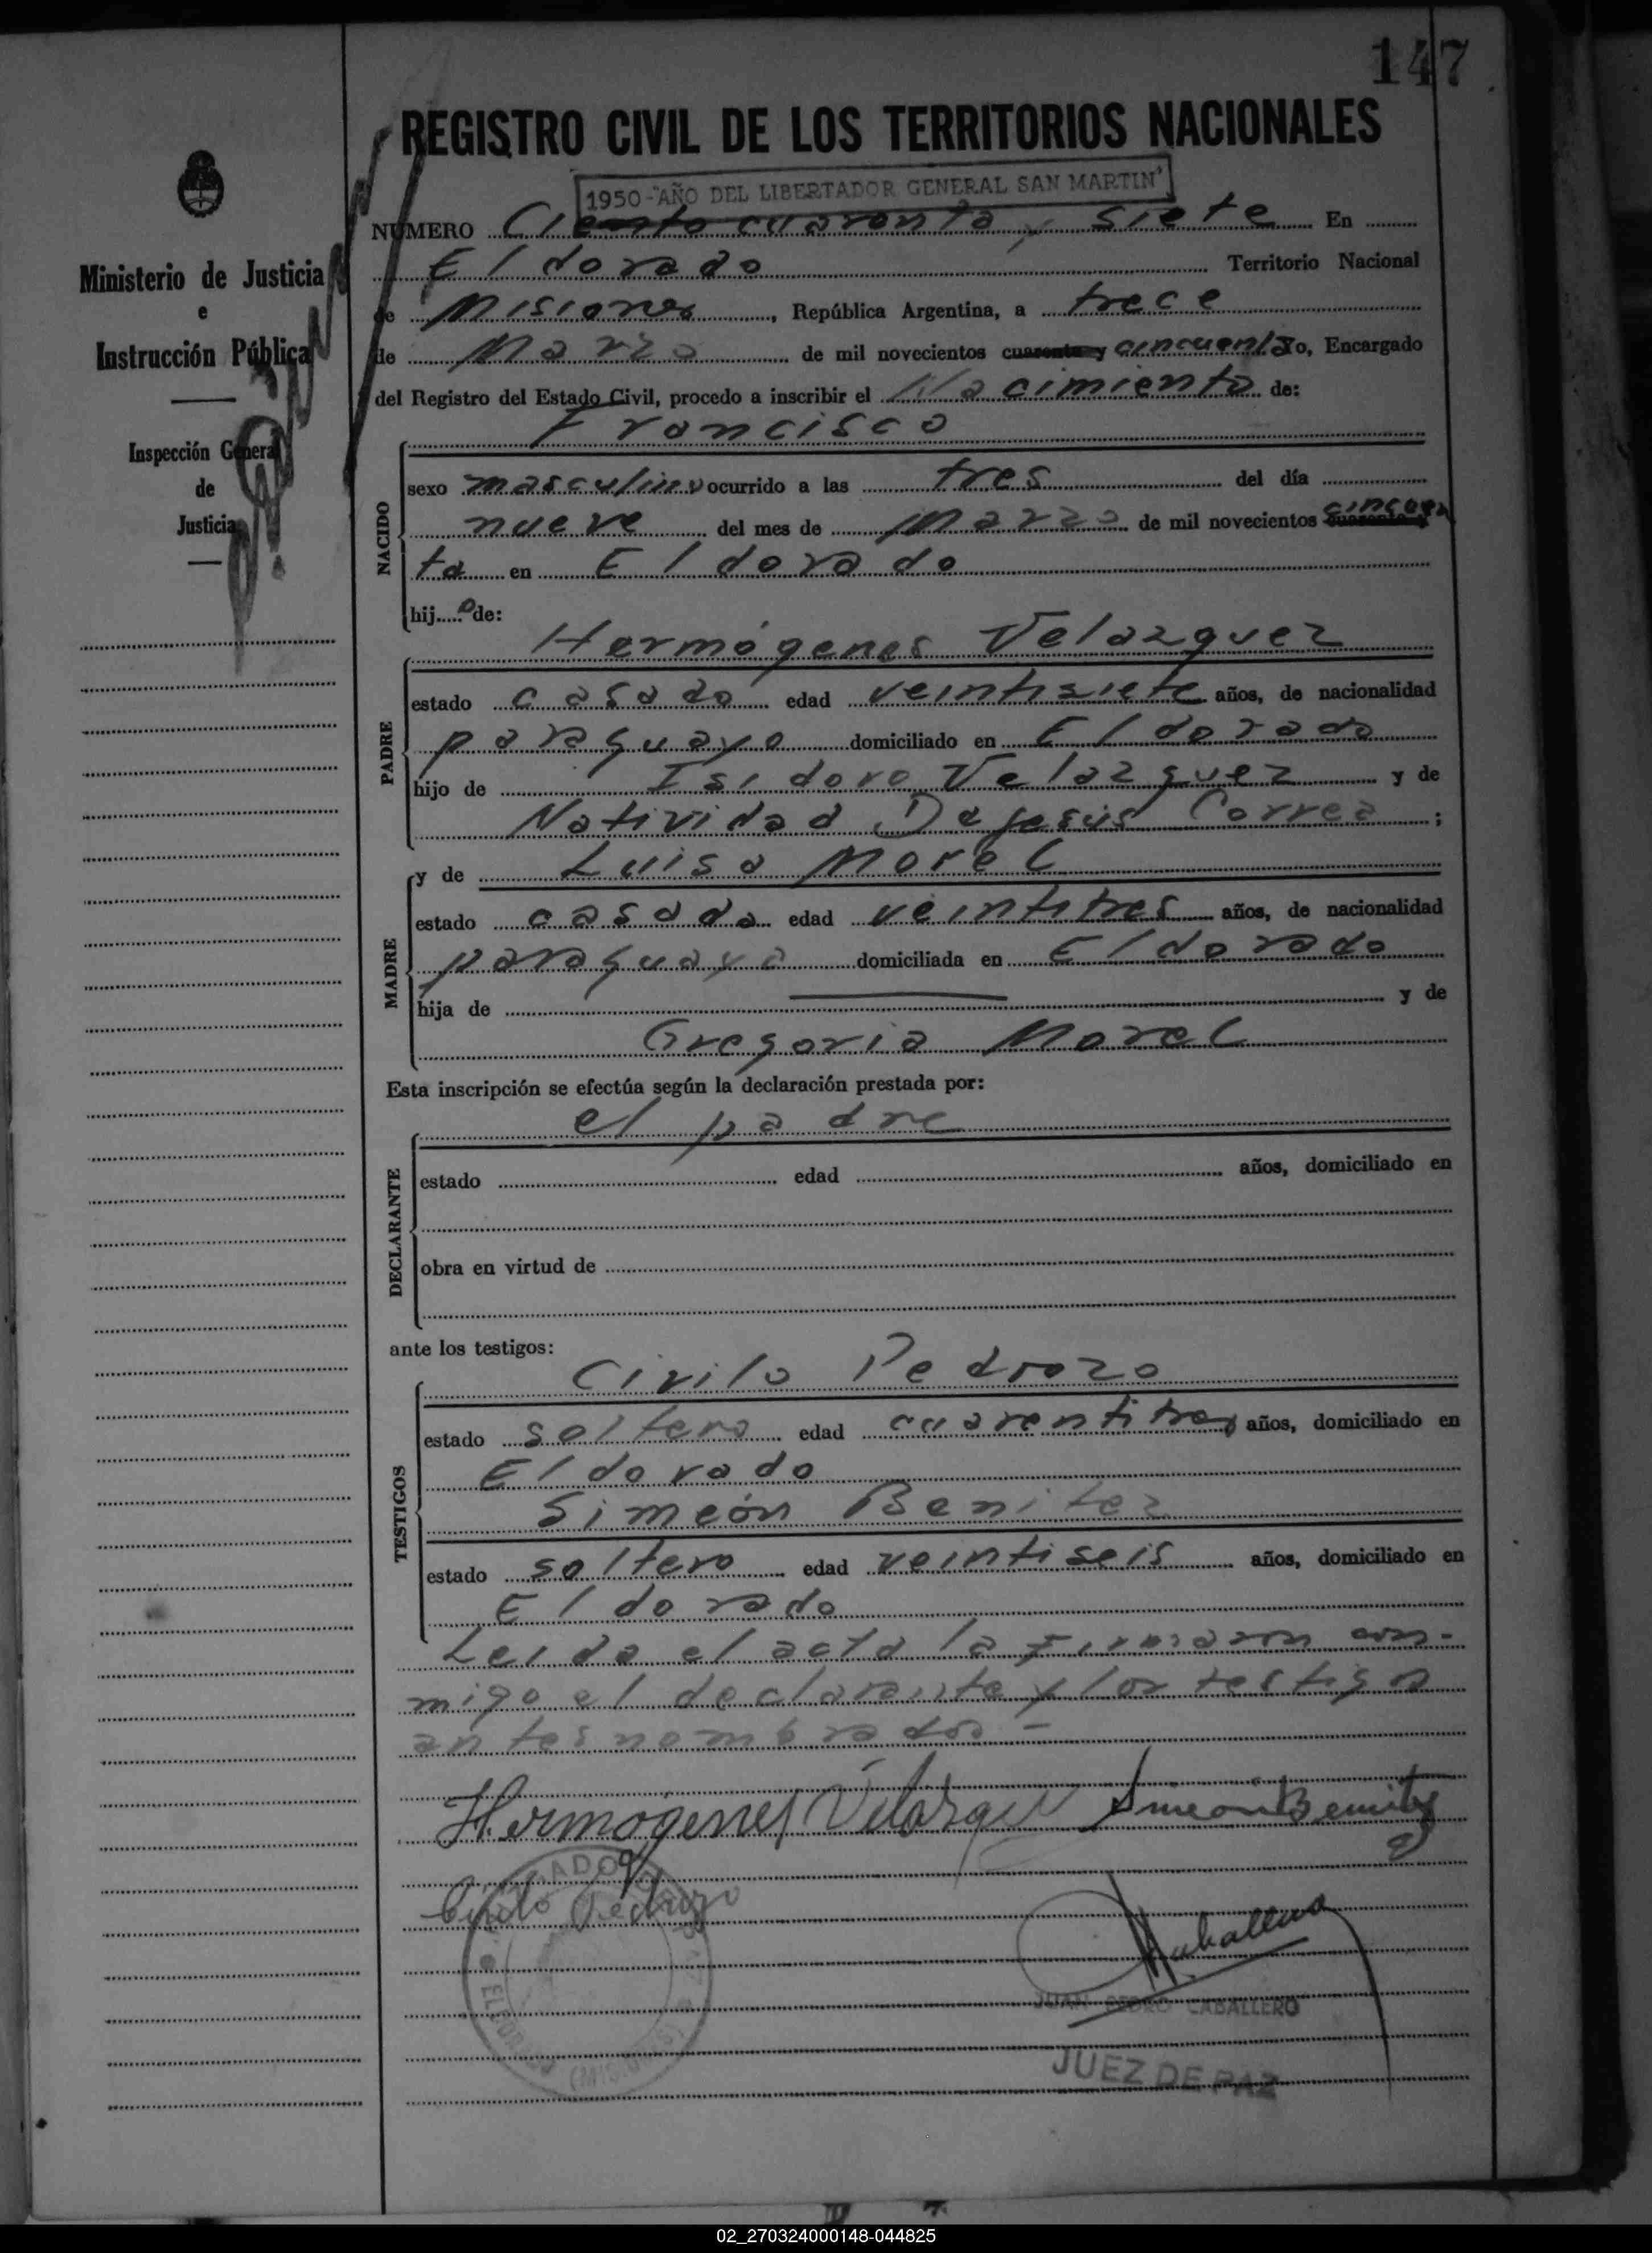 147
REGISTRO CIVIL DE LOS TERRITORIOS NACIONALES
1950-"AÑO DEL LIBERTADOR GENERAL SAN MARTIN"
Ministerio de Justicia
e
Instrucción Pública
Inspección General
de
Justicia
NÚMERO Ciento cuarenta y siete En
Eldorado Territorio Nacional
de Misiones, República Argentina, a trece
de Marzo de mil novecientos cuarenta y cincuenta yo, Encargado
del Registro del Estado Civil, procedo a inscribir el Nacimiento de:
Francisco
NACIDO
sexo masculino ocurrido a las tres del día
nueve del mes de Marzo de mil novecientos cuarenta y cincuen
ta en Eldorado
hijo de:
Hermógenes Velazquez
PADRE
estado casado edad veintisiete años, de nacionalidad
paraguayo domiciliado en Eldorado
hijo de Isidoro Velazquez y de
Natividad De Jesús Correa ;
y de Luisa Morel
MADRE
estado casada edad veintitres años, de nacionalidad
paraguaya domiciliada en Eldorado
hija de y de
Gregoria Morel
Esta inscripción se efectúa según la declaración prestada por:
el padre
DECLARANTE
estado edad años, domiciliado en
obra en virtud de
ante los testigos:
Cirilo Pedrozo
TESTIGOS
estado soltero edad cuarentitres años, domiciliado en
Eldorado
Simeón Benitez
estado soltero edad veintiseis años, domiciliado en
Eldorado
Leida el acta la firmaron con-
migo el declarante y los testigos
antes nombrados -
Hermógenes Velazquez Simeon Benitez
Cirilo Pedrozo
Caballero
JUAN PEDRO CABALLERO
JUEZ DE PAZ
02_270324000148-044825